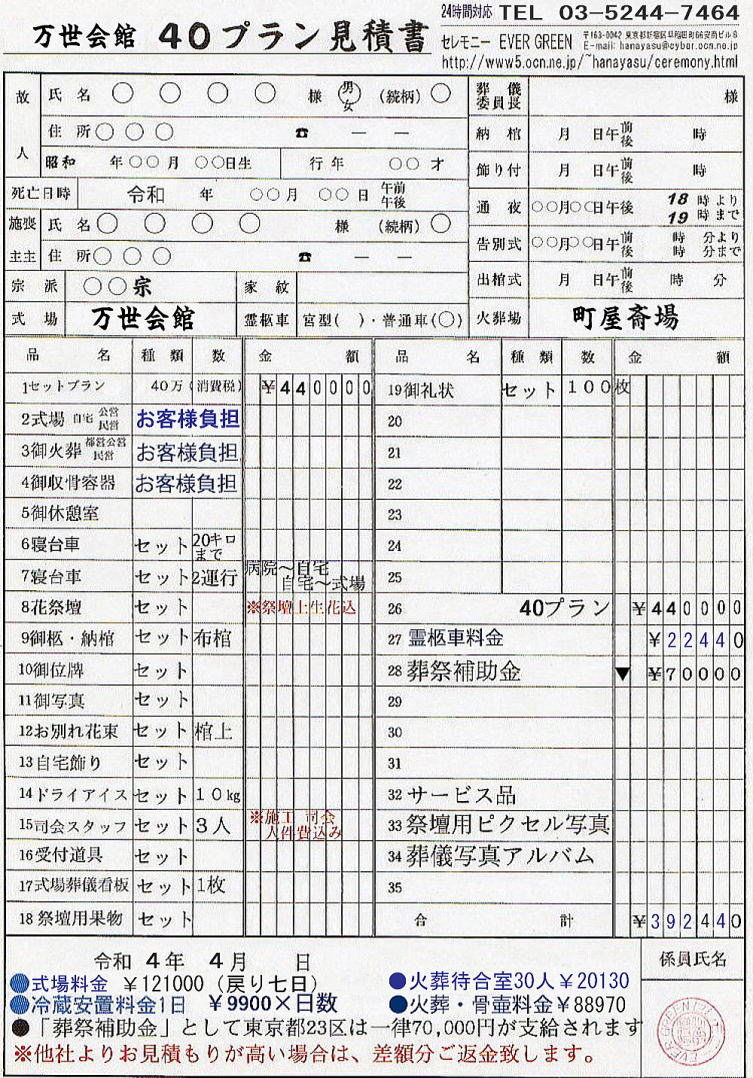 万世会館 40プラン見積書
24時間対応 TEL 03-5244-7464
セレモニー EVER GREEN
〒163-0042 東京都新宿区早稲田町66安商ビル8
E-mail: hanayasu@cyber.ocn.ne.jp
http://www5.ocn.ne.jp/~hanayasu/ceremony.html
故人 氏名 ○ ○ ○ ○ 様 男 女 (続柄) ○
住所 ○ ○ ○ ☎ ― ―
昭和 年○○月 ○○日生 行年 ○○才
死亡日時 令和 年 ○○月 ○○日 午前 午後
施主 喪主 氏名 ○ ○ ○ ○ 様 (続柄) ○
住所 ○ ○ ○ ☎ ― ―
宗派 ○○宗 家紋
式場 万世会館 霊柩車 宮型( )・普通車(○)
葬儀委員長 様
納棺 月 日午前後 時
飾り付 月 日午前後 時
通夜 ○○月○○日午後 18時より 19時まで
告別式 ○○月○○日午前後 時 分より 時 分まで
出棺式 月 日午前後 時 分
火葬場 町屋斎場
品名 種類 数 金額
1セットプラン 40万 (消費税) ¥440000
2式場 自宅 公営 民営 お客様負担
3御火葬 都営公営 民営 お客様負担
4御収骨容器 お客様負担
5御休憩室
6寝台車 セット 20キロまで
7寝台車 セット 2運行 病院~自宅 自宅~式場
8花祭壇 セット ※祭壇上生花込
9御柩・納棺 セット 布棺
10御位牌 セット
11御写真 セット
12お別れ花束 セット 棺上
13自宅飾り セット
14ドライアイス セット 10kg
15司会スタッフ セット 3人 ※施工 司会 人件費込み
16受付道具 セット
17式場葬儀看板 セット 1枚
18祭壇用果物 セット
品名 種類 数 金額
19御礼状 セット 100枚
20
21
22
23
24
25
26 40プラン ¥440000
27 霊柩車料金 ¥22440
28 葬祭補助金 ▼ ¥70000
29
30
31
32 サービス品
33 祭壇用ピクセル写真
34 葬儀写真アルバム
35
合計 ¥392440
令和 4年 4月 日
●式場料金 ¥121000 (戻り七日)
●冷蔵安置料金1日 ¥9900×日数
●火葬待合室30人¥20130
●火葬・骨壷料金¥88970
●「葬祭補助金」として東京都23区は一律70,000円が支給されます
※他社よりお見積もりが高い場合は、差額分ご返金致します。
係員氏名
EVER GREEN